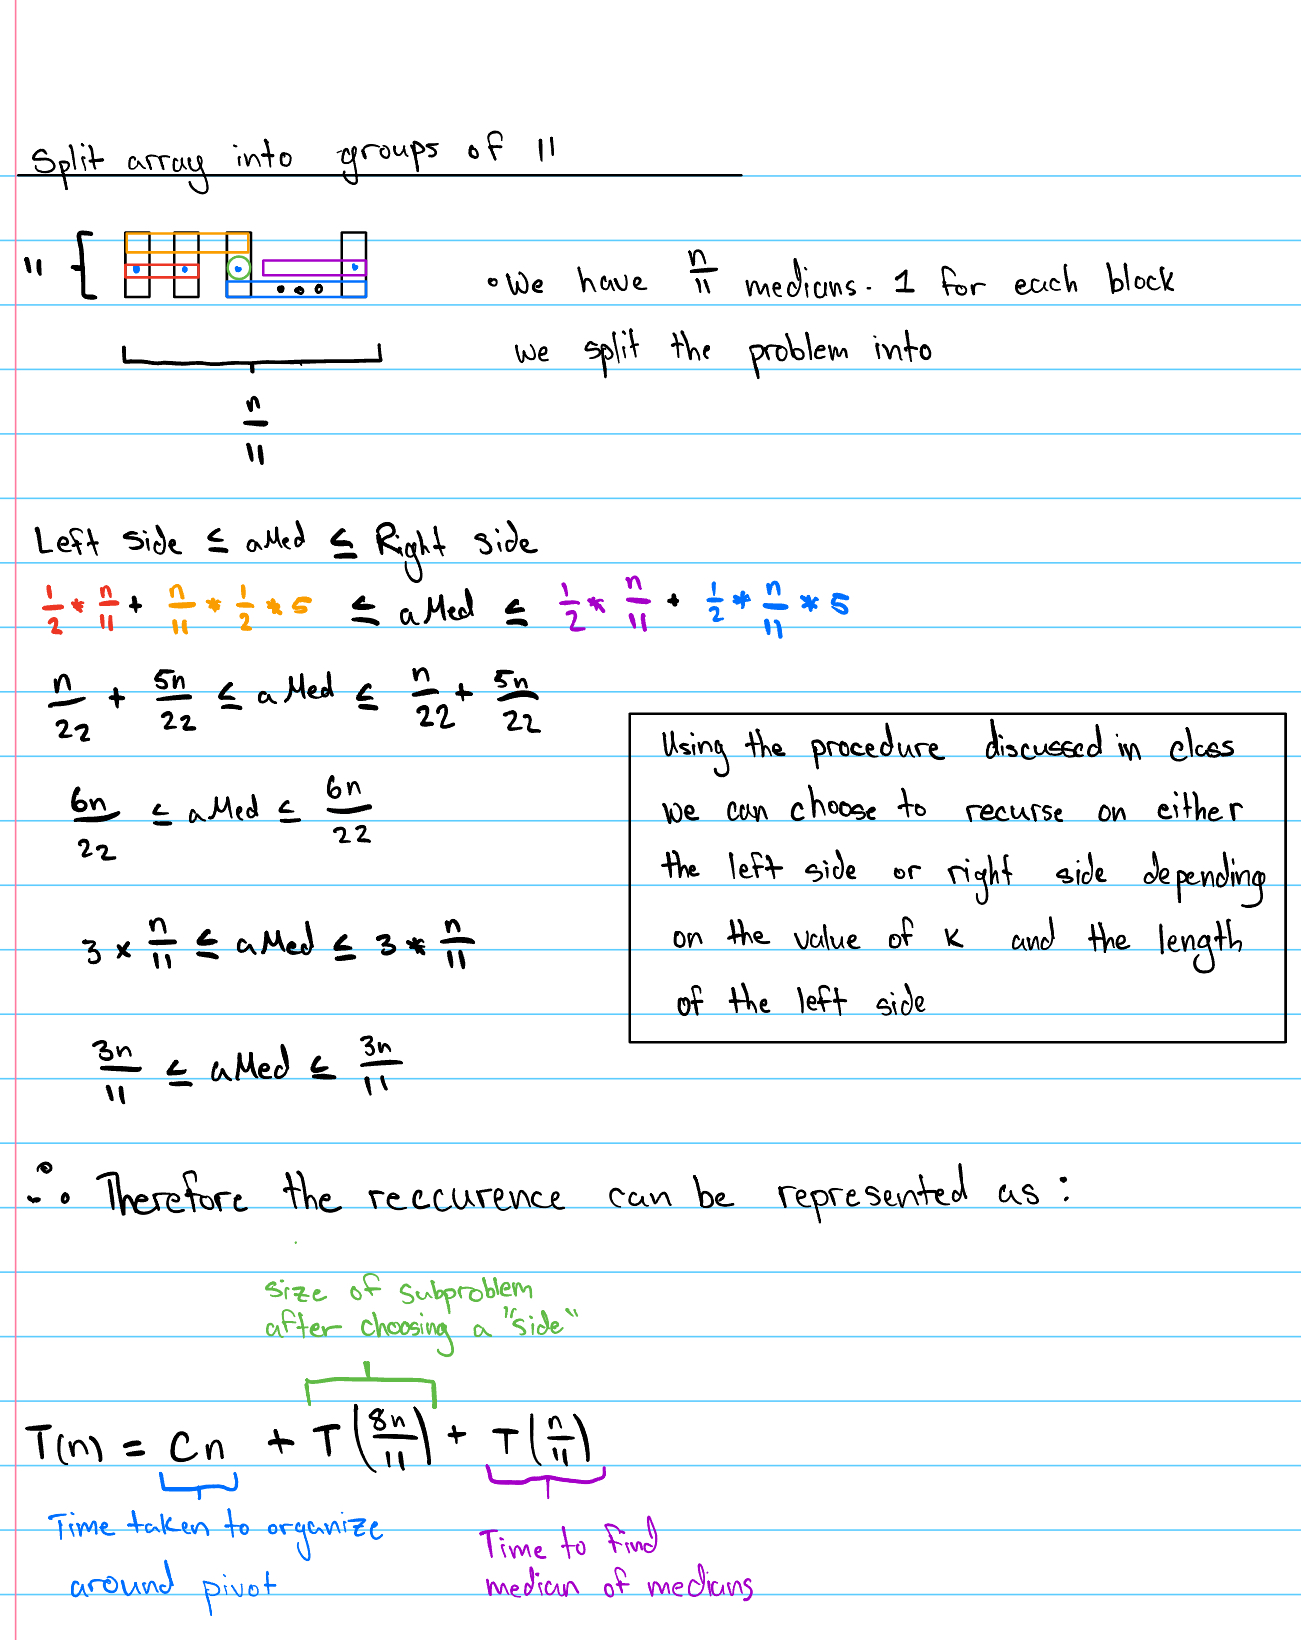 Split array into groups of 11
11
• We have n/11 medians. 1 for each block
we split the problem into
n/11
Left side ≤ aMed ≤ Right side
1/2 * n/11 + n/11 * 1/2 * 5 ≤ aMed ≤ 1/2 * n/11 + 1/2 * n/11 * 5
n/22 + 5n/22 ≤ aMed ≤ n/22 + 5n/22
6n/22 ≤ aMed ≤ 6n/22
3 × n/11 ≤ aMed ≤ 3 * n/11
3n/11 ≤ aMed ≤ 3n/11
Using the procedure discussed in class
we can choose to recurse on either
the left side or right side depending
on the value of K and the length
of the left side
∴ Therefore the reccurence can be represented as:
size of subproblem
after choosing a "side"
T(n) = Cn + T(8n/11) + T(n/11)
Time taken to organize
around pivot
Time to find
median of medians